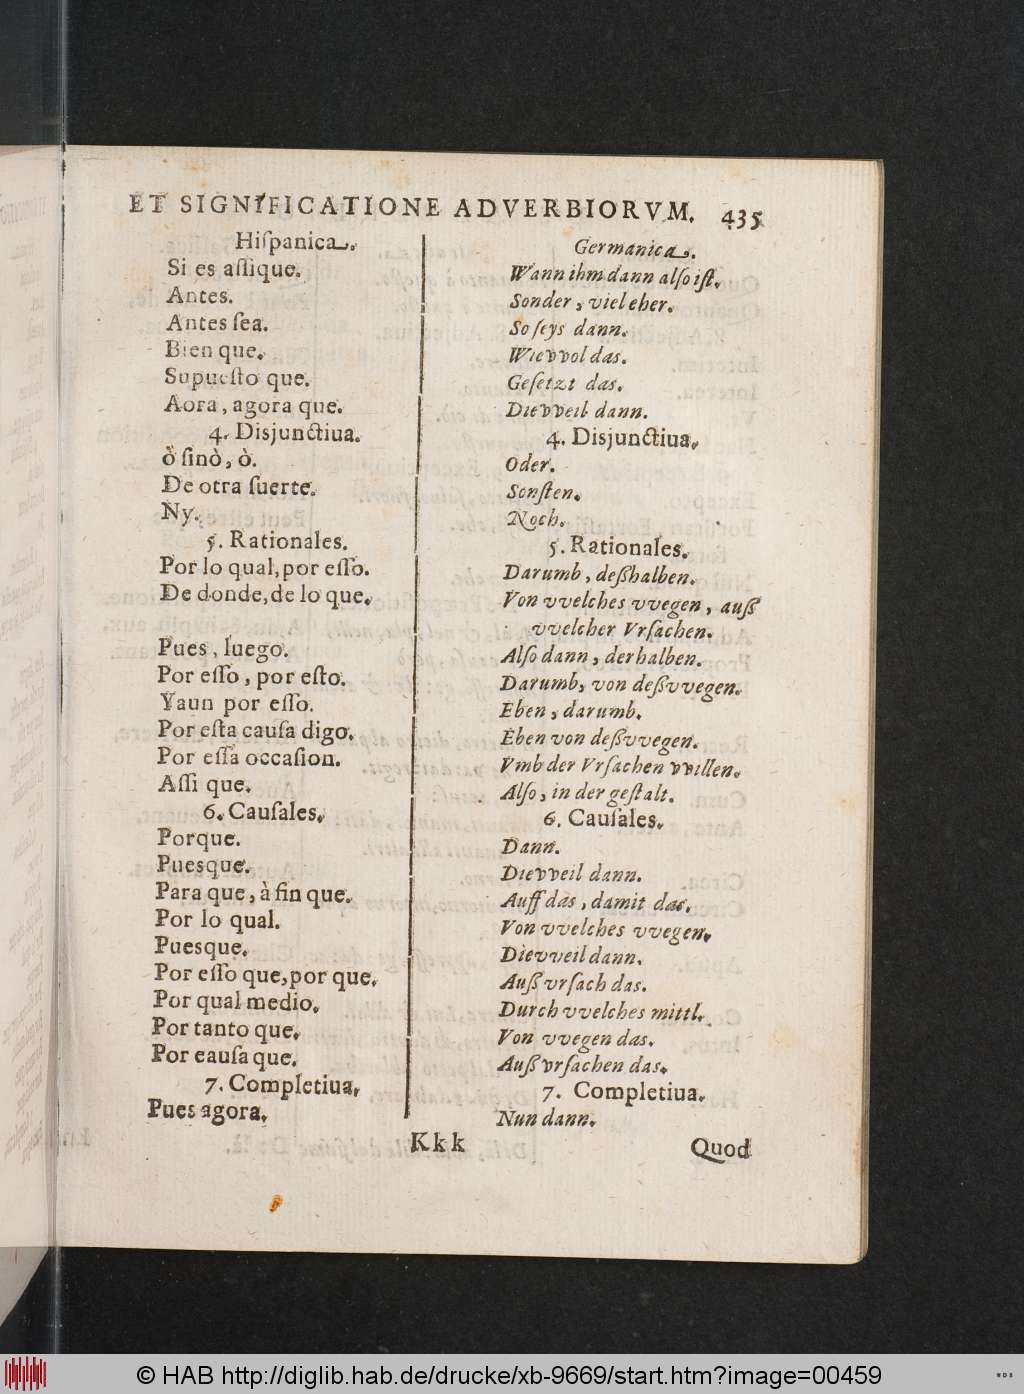 ET SIGNIFICATIONE ADVERBIORVM. 435
Hiſpanica.
Si es aſsique.
Antes.
Antes ſea.
Bien que.
Supueſto que.
Aora, agora que.
4. Disjunctiua.
ò ſinò, ò.
De otra ſuerte.
Ny.
5. Rationales.
Por lo qual, por eſſo.
De donde, de lo que.
Pues, luego.
Por eſſo, por eſto.
Yaun por eſſo.
Por eſta cauſa digo.
Por eſſa occaſion.
Aſſi que.
6. Cauſales.
Porque.
Puesque.
Para que, à fin que.
Por lo qual.
Puesque.
Por eſſo que, por que.
Por qual medio.
Por tanto que.
Por eauſa que.
7. Completiua.
Pues agora.
Germanica.
Wann ihm dann alſo iſt.
Sonder, viel eher.
So ſeys dann.
Wievvol das.
Geſetzt das.
Dievveil dann.
4. Disjunctiua.
Oder.
Sonſten.
Noch.
5. Rationales.
Darumb, deßhalben.
Von vvelches vvegen, auß
vvelcher Vrſachen.
Alſo dann, derhalben.
Darumb, von deßvvegen.
Eben, darumb.
Eben von deßvvegen.
Vmb der Vrſachen vvillen.
Alſo, in der geſtalt.
6. Cauſales.
Dann.
Dievveil dann.
Auff das, damit das.
Von vvelches vvegen.
Dievveil dann.
Auß vrſach das.
Durch vvelches mittl.
Von vvegen das.
Auß vrſachen das.
7. Completiua.
Nun dann.
Kkk
Quod
© HAB http://diglib.hab.de/drucke/xb-9669/start.htm?image=00459